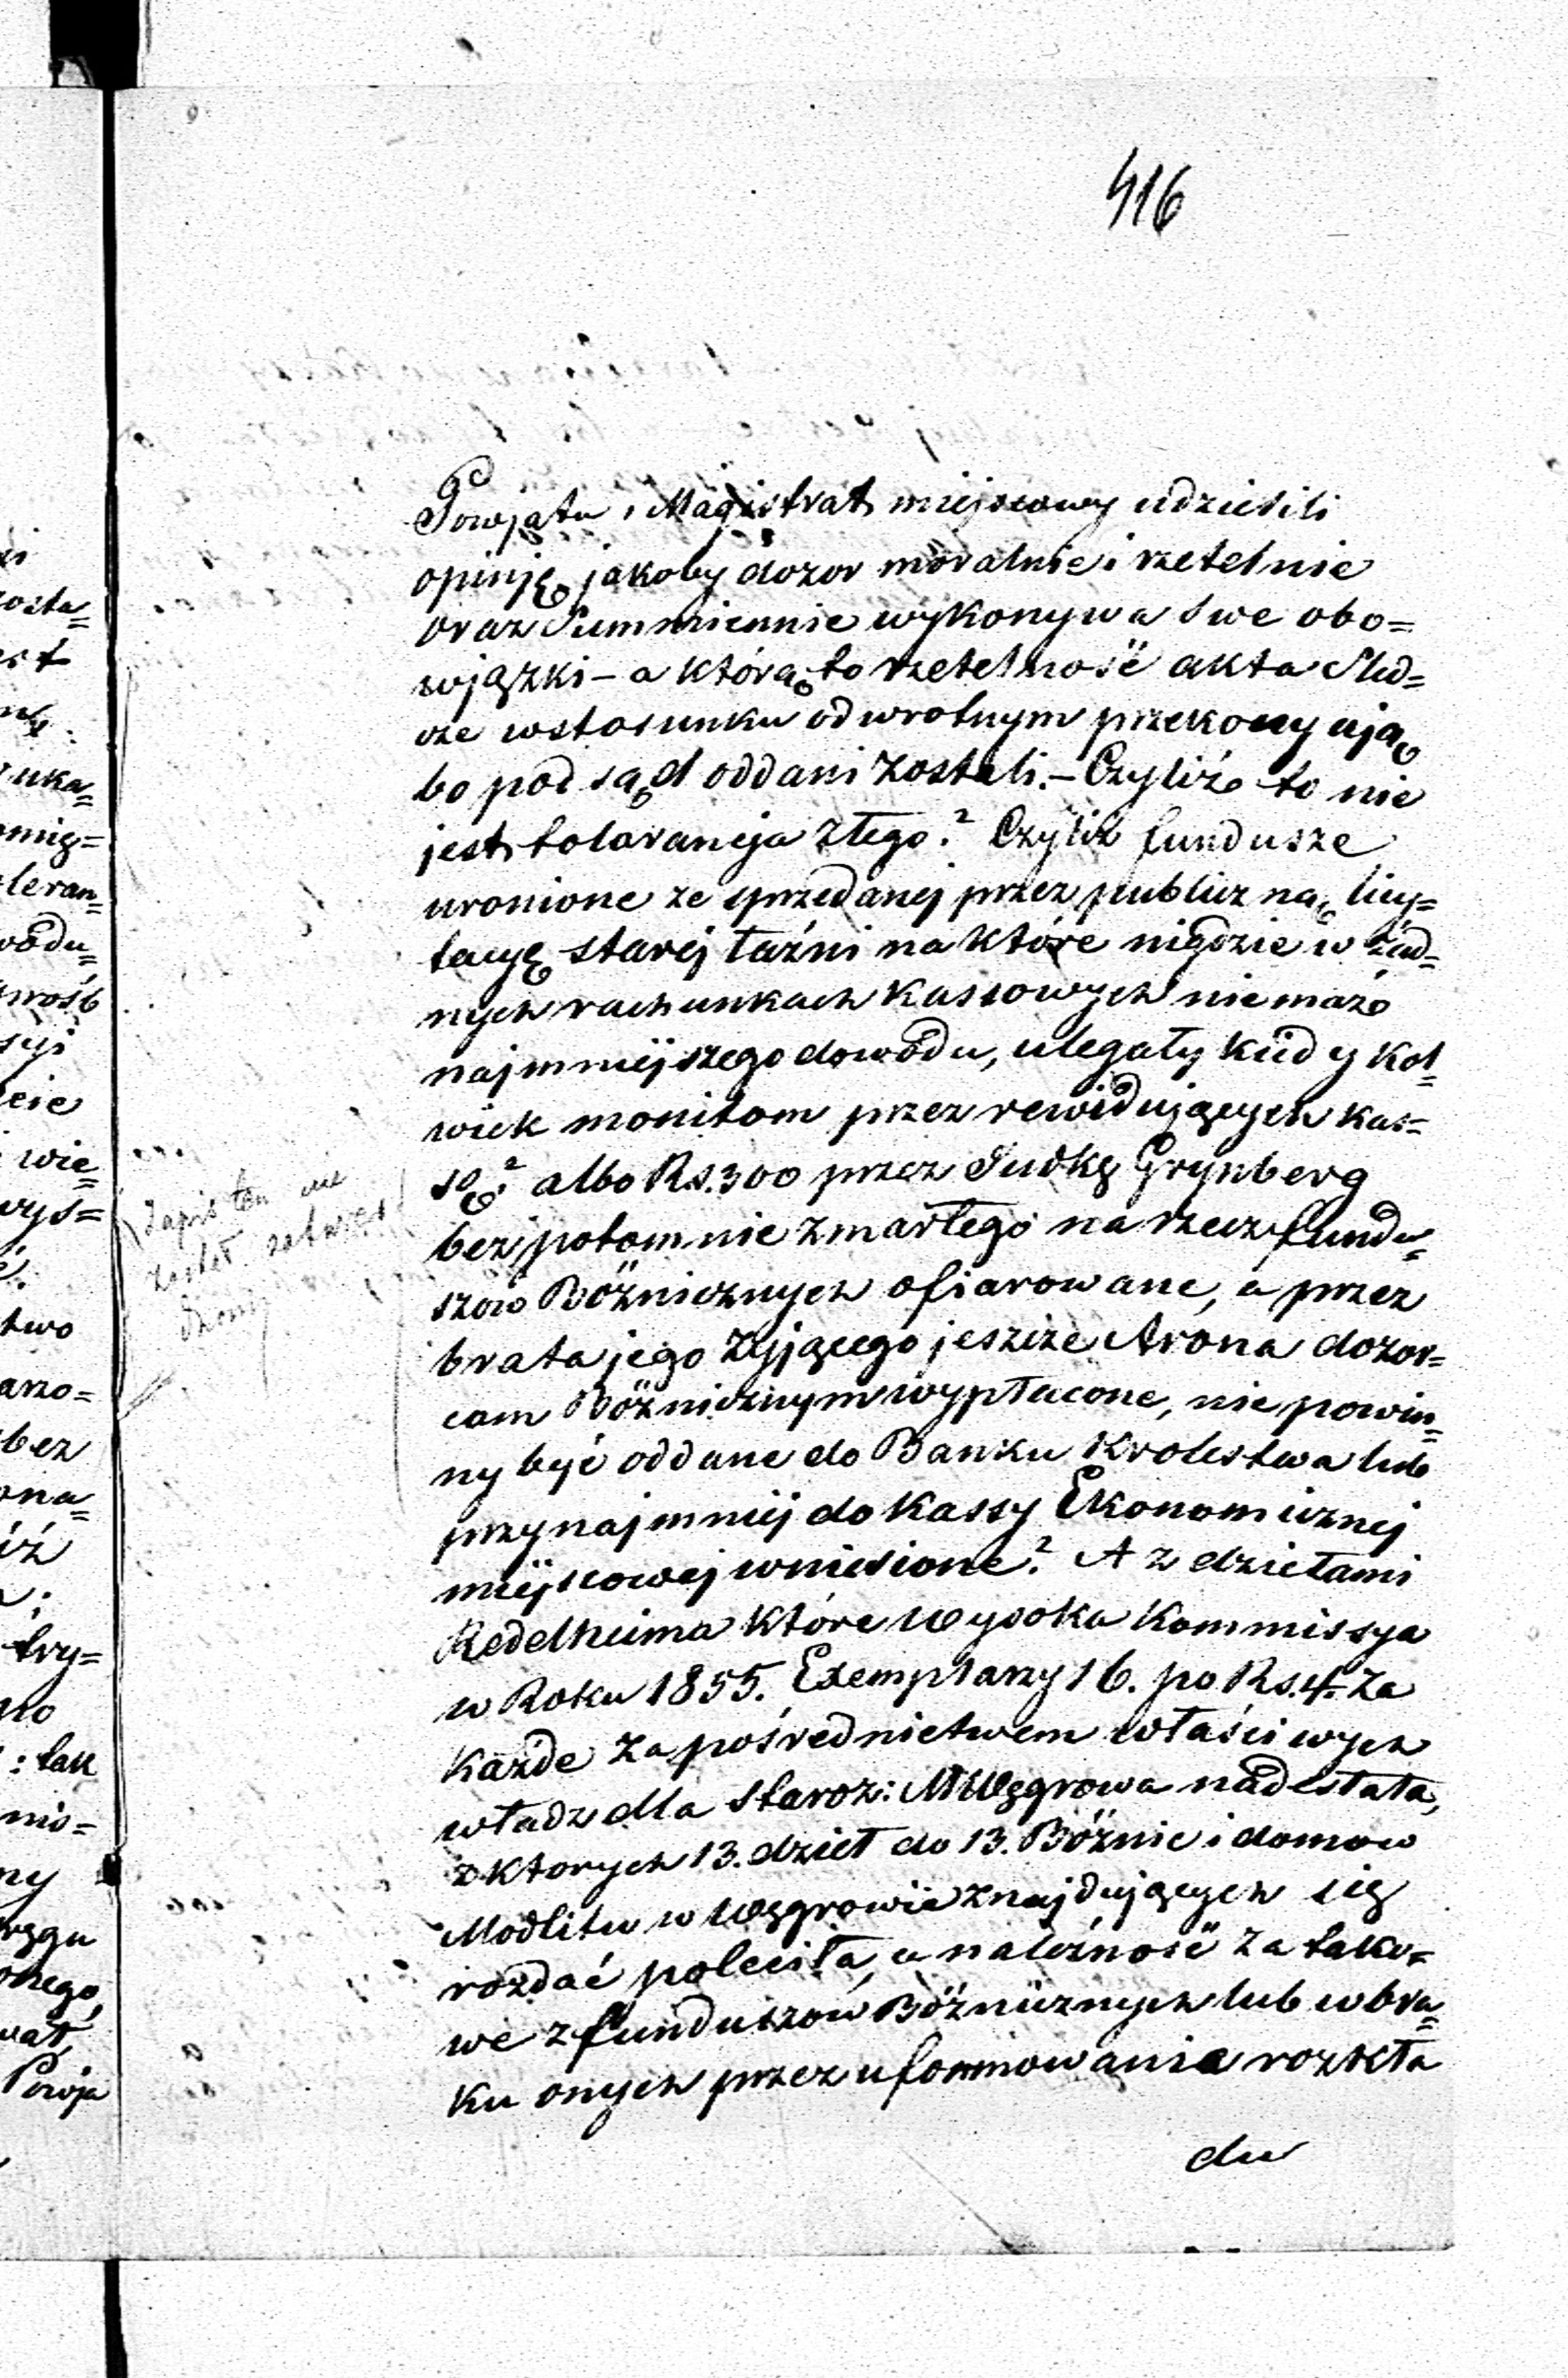 416
Powjatu, Magistrat miejscowy udzielili
opinję jakoby dozor moralnie i rzetelnie
oraz Summiennie wykonywa swe obo=
wjązki – a którą to rzetelność akta Sled=
cze wstosunku odwrotnym przekonywują
bo pod sąd oddani zostali. – Czyliżo to nie
jest tolarancja złego? Czyliż fundusze
uronione ze sprzedanej przez publiczną licy=
tacyę starej łaźni na które nigdzie w żad=
nych rachunkach kassowych niemażo
najmniejszego dowodu, ulegały kiedykol=
wiek monitom przez rewidujących kas=
sę? albo Rs. 300 przez Judkę Grynberg
bezpotomnie zmarłego na rzecz fundu=
szow Bóżnicznych ofiarowane, a przez
brata jego żyjącego jeszcze Arona dozor=
com Bóżnicznym wypłacone, nie powin=
ny być oddane do Banku Krolestwa lub
przynajmniej do Kassy Ekonomicznej
miejscowej wniesione? A z dziełami
Redelheima które Wysoka Kommissya
w Roku 1855. Exemplarzy 16. po Rs. 4. za
każde za pośrednictwem właściwych
władz dla Staroz: M Węgrowa nadesłała,
z ktorych 13. dzieł do 13. Bóżnic i domow
Modlitw w Węgrowie znajdujących się
rozdać poleciła, a należność za tako=
we z funduszow Bóżnicznych lub w bra=
ku onych przez uformowanie rozkła
du
Zapis ten nie
został zatwier
dzony